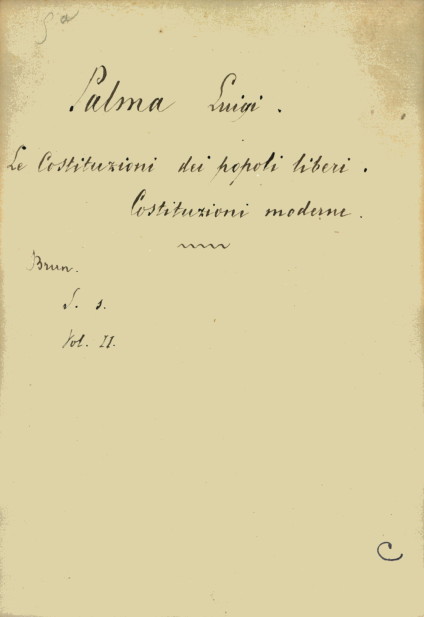 Palma Luigi.
Le Costituzioni dei popoli liberi.
Costituzioni moderne.
Brun.
S. s.
Vol. II.
C